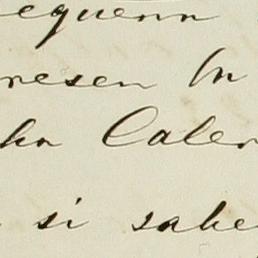 equenn
resen In
hn Caler
si sabe